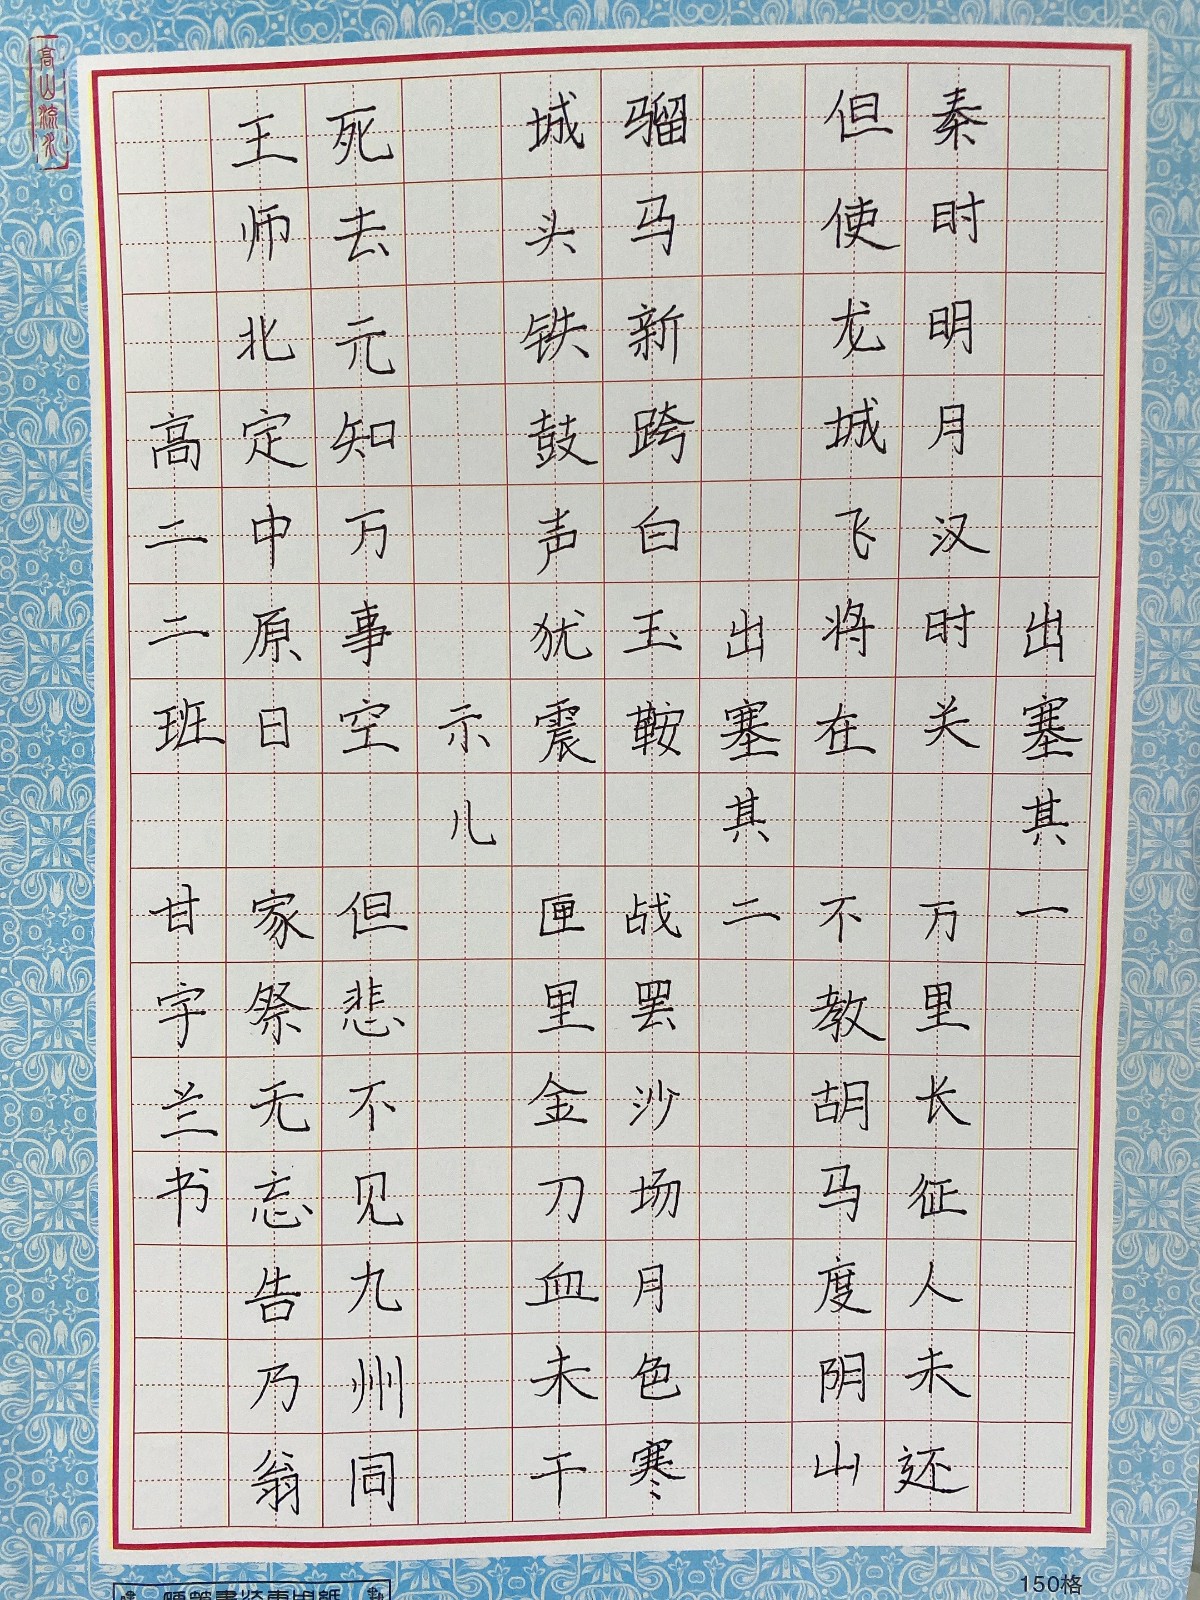 出塞其一
秦时明月汉时关 万里长征人未还
但使龙城飞将在 不教胡马度阴山
出塞其二
骝马新跨白玉鞍 战罢沙场月色寒
城头铁鼓声犹震 匣里金刀血未干
示儿
死去元知万事空 但悲不见九州同
王师北定中原日 家祭无忘告乃翁
高二二班 甘宇兰书
高山流水
150格